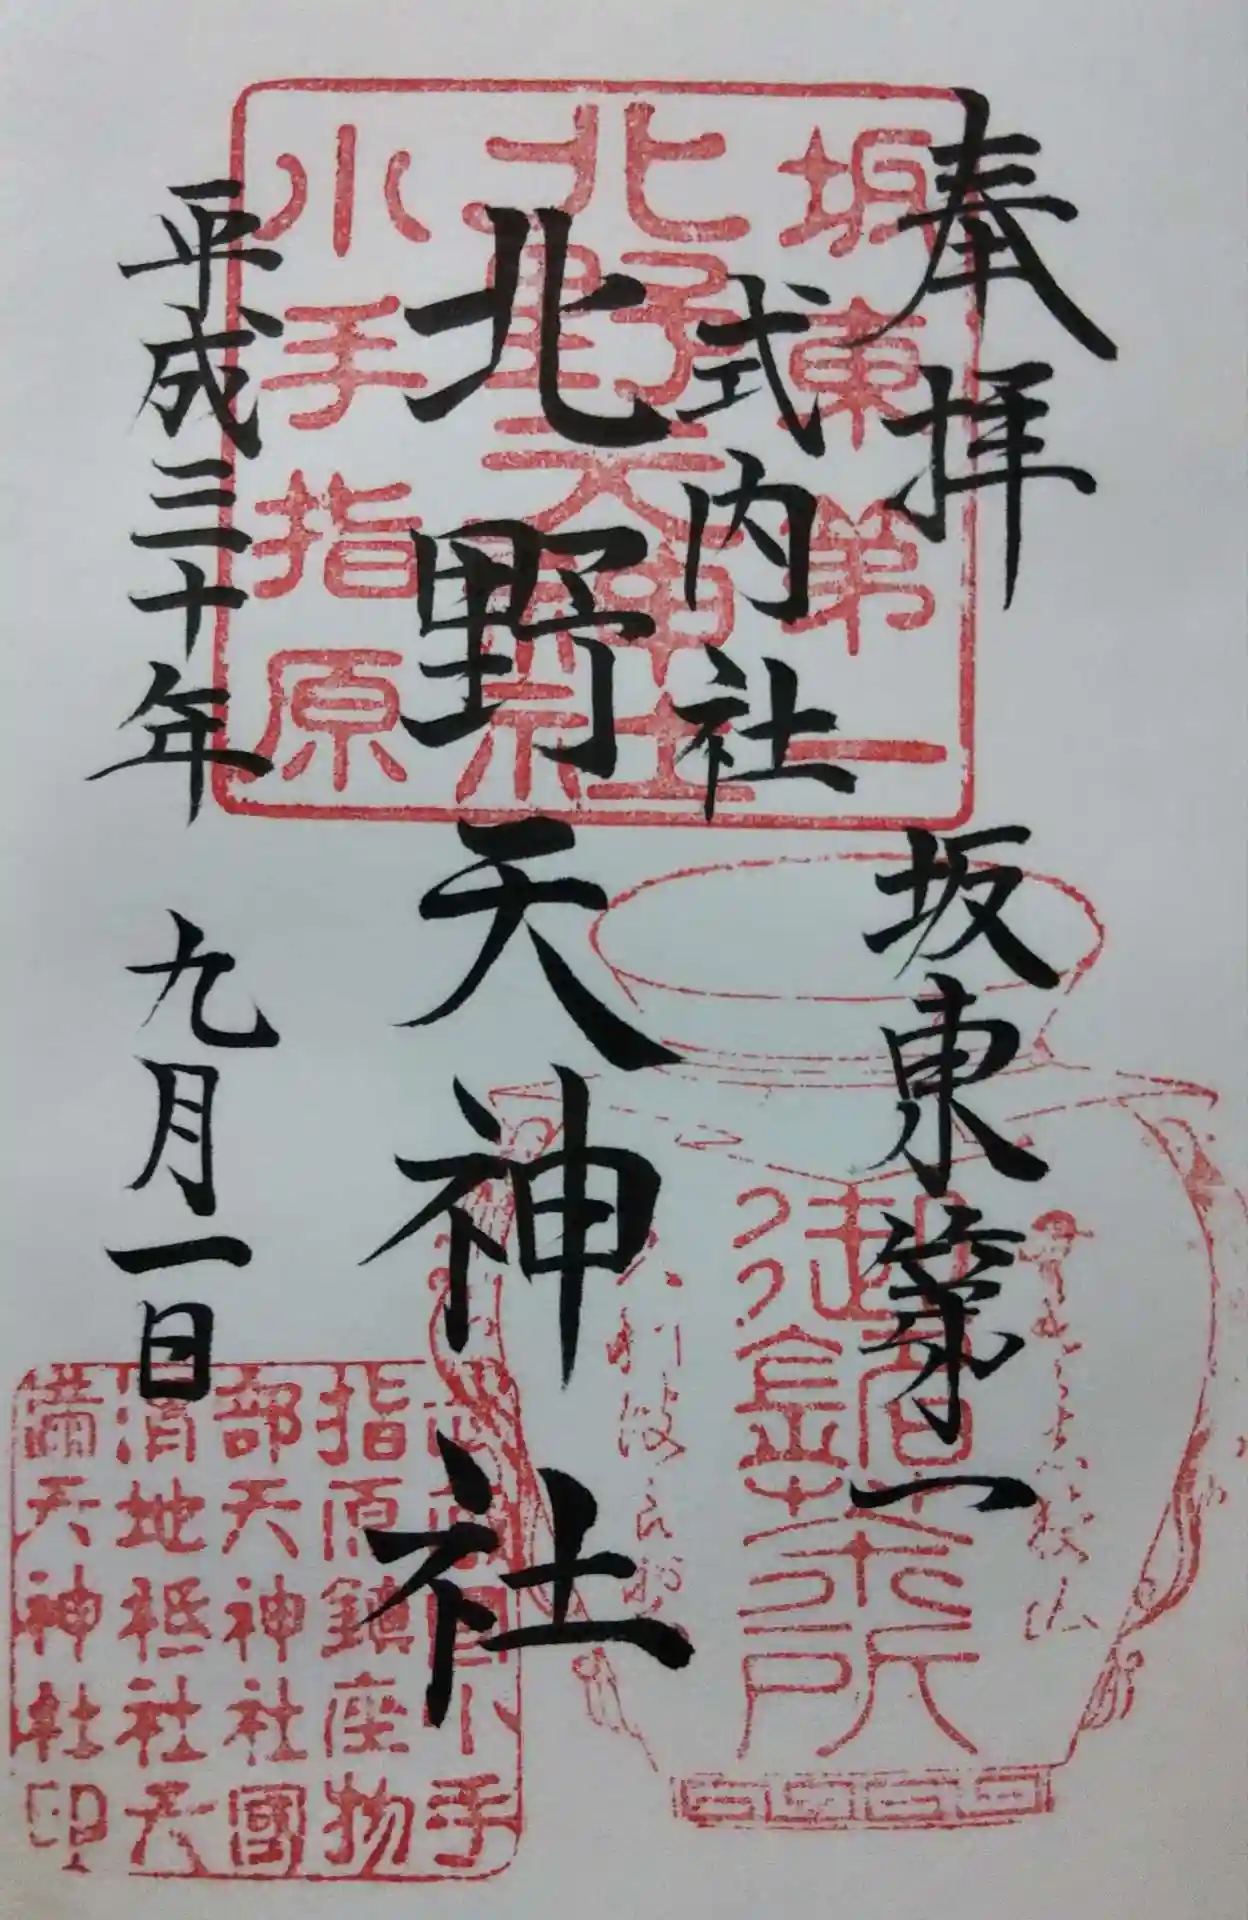 奉拝
坂東第一
式内社
北野天神社
平成三十年
九月一日
坂東第一
北野天神社
小手指原
御
茶所
小手
指原鎮座物
部天神社國
渭地祗社天
満天神社印